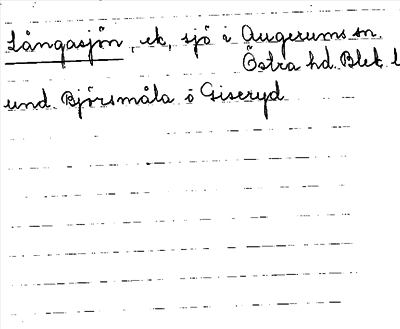 Långasjön, ek, sjö i Augerums sn.
Östra hd. Blek. l
und. Björsmåla o Giseryd